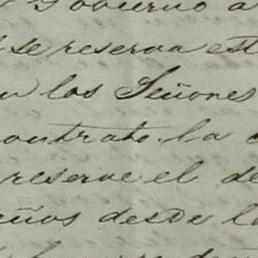 Gobierno a
se reserva est
los Señores
contrato la
reserve el de
desde l